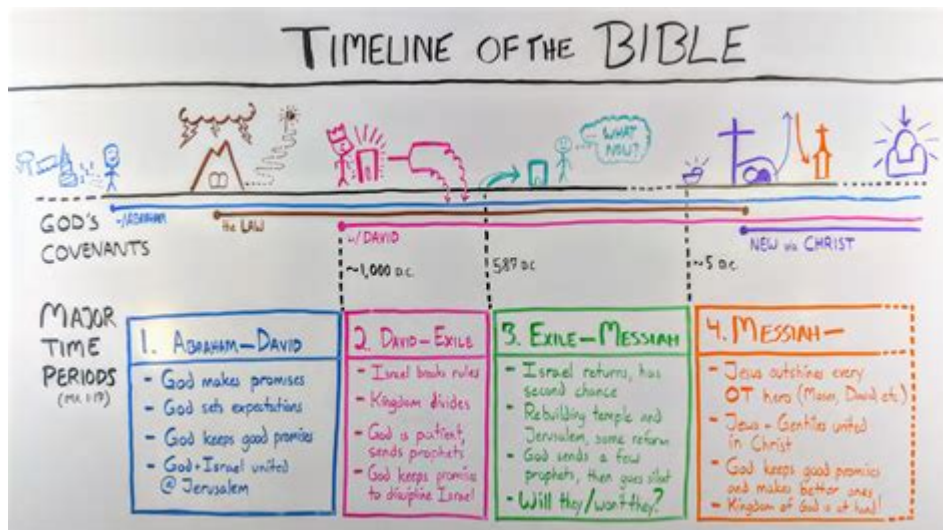 TIMELINE OF THE BIBLE
WHAT
NOW?
GOD'S
COVENANTS
w/ABRAHAM
the LAW
w/DAVID
NEW via CHRIST
~1,000 B.C.
587 B.C.
~5 B.C.
MAJOR
TIME
PERIODS
(Mt. 1:17)
1. ABRAHAM–DAVID
- God makes promises
- God sets expectations
- God keeps good promises
- God + Israel united
@ Jerusalem
2. DAVID–EXILE
- Israel breaks rules
- Kingdom divides
- God is patient,
sends prophets
- God keeps promises
to discipline Israel
3. EXILE–MESSIAH
- Israel returns, has
second chance
- Rebuilding temple and
Jerusalem, some reform
- God sends a few
prophets, then goes silent
- Will they/won't they?
4. MESSIAH–
- Jesus outshines every
OT hero (Moses, David, etc)
- Jews + Gentiles united
in Christ
- God keeps good promises
and makes better ones
- Kingdom of God is at hand!